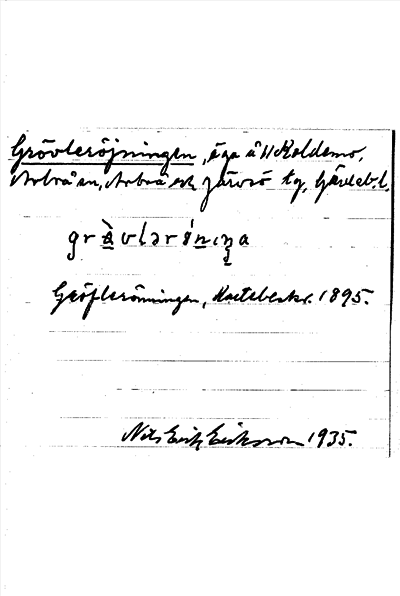 Grövleröjningen, äga å 11 Koldemo,
Arbrå sn, Arbrå och Järvsö tg, Gävleb. l.
grà̱vlərö́ṉıŋa
Gröflerönningen, Kartebeskr. 1895.
Nils Erik Eriksson 1935.